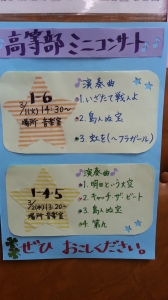 高等部ミニコンサート
1-6
3/1(火) 14:30〜
場所 音楽室
♪演奏曲♪
*1. いざたて戦人よ
*2. 島人ぬ宝
*3. 虹を(〜フラガール)
1-4·5
3/2(水) 13:20〜
場所 音楽室
♪演奏曲♪
*1. 明日という大空
*2. キャッチ・ザ・ビート
*3. 島人ぬ宝
*4. 第九
ぜひ おこしください。